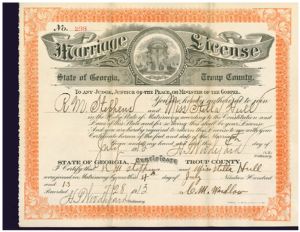 No. 298
Marriage License
State of Georgia, Troup County.
To any Judge, Justice of the Peace, or Minister of the Gospel.
You are hereby authorized to join
R. M. Stephens and Miss Stella Hull
in the Holy State of Matrimony according to the Constitution and
Laws of this State and for so doing this shall be your License
And you are hereby required to return this License to me with your
Certificate hereon of the fact and date of the Marriage
Given under my hand and seal this
day of July
Certificate
STATE OF GEORGIA, TROUP COUNTY
I Certify that R. M. and Miss Stella Hull
were joined in Matrimony by me this 4 day of July Nineteen Hundred
and 13
7/28 13